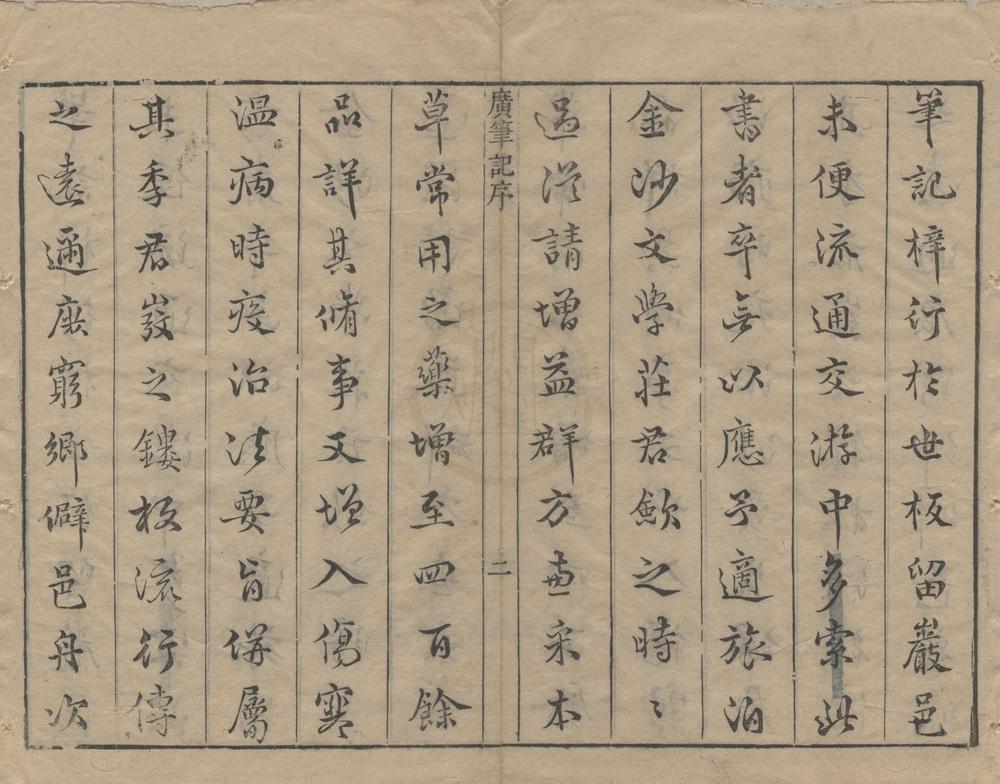 筆記梓行於世板留巖邑
未便流通交游中多索此
書者卒無以應予適旅泊
金沙文學莊君歛之時〻
過從請增益群方兼采本
廣筆記序
二
草常用之藥增至四百餘
品詳其脩事又增入傷寒
温病時疫治法要旨併屬
其季君發之鏤板流行傳
之遠邇庶窮鄉僻邑舟次